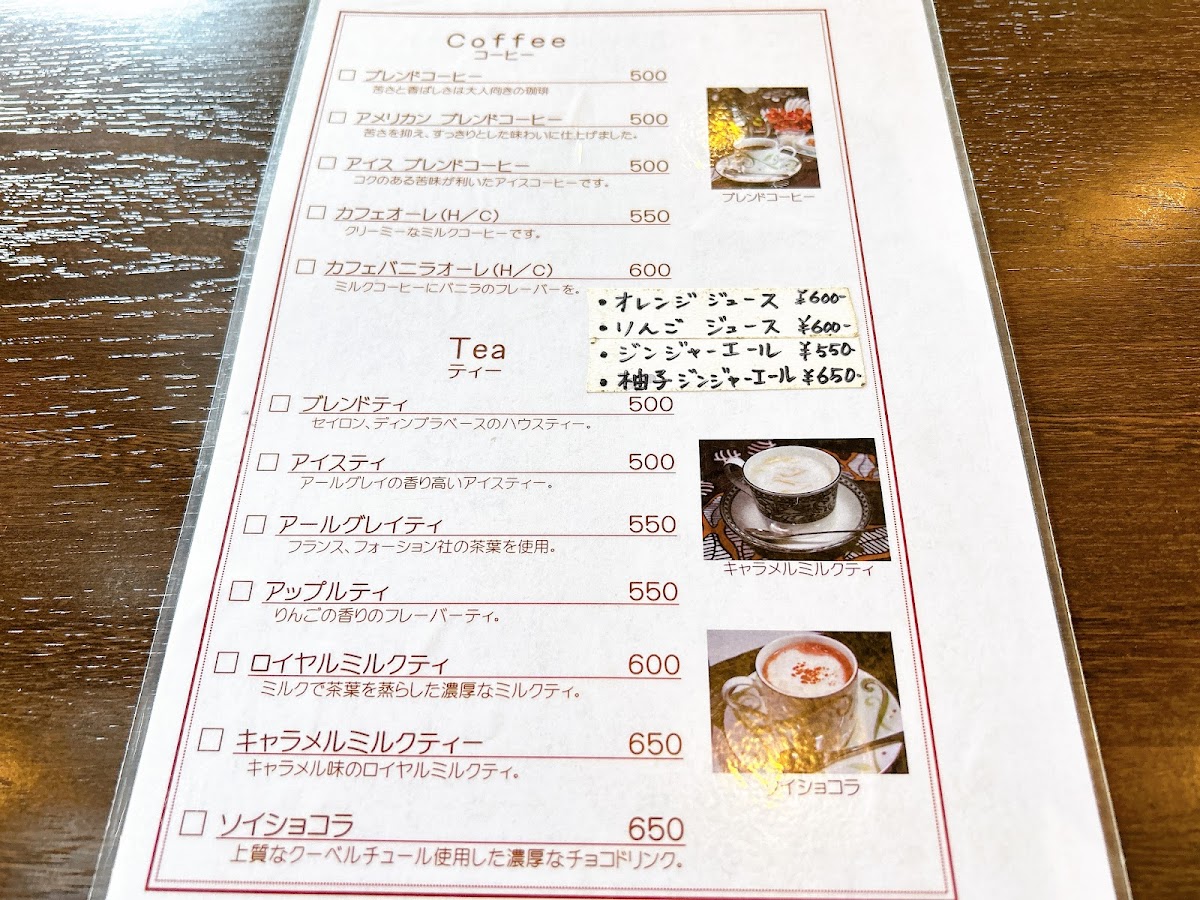 Coffee
コーヒー
ブレンドコーヒー 500
苦さと香ばしさは大人向きの珈琲
アメリカン ブレンドコーヒー 500
苦さを抑え、すっきりとした味わいに仕上げました。
アイス ブレンドコーヒー 500
コクのある苦味が利いたアイスコーヒーです。
カフェオーレ(H/C) 550
クリーミーなミルクコーヒーです。
カフェバニラオーレ(H/C) 600
ミルクコーヒーにバニラのフレーバーを。
ブレンドコーヒー
・オレンジジュース ¥600-
・りんご ジュース ¥600-
・ジンジャーエール ¥550-
・柚子ジンジャーエール ¥650-
Tea
ティー
ブレンドティ 500
セイロン、ディンブラベースのハウスティー。
アイスティ 500
アールグレイの香り高いアイスティー。
アールグレイティ 550
フランス、フォーション社の茶葉を使用。
アップルティ 550
りんごの香りのフレーバーティ。
ロイヤルミルクティ 600
ミルクで茶葉を蒸らした濃厚なミルクティ。
キャラメルミルクティー 650
キャラメル味のロイヤルミルクティ。
ソイショコラ 650
上質なクーベルチュール使用した濃厚なチョコドリンク。
キャラメルミルクティ
ソイショコラ